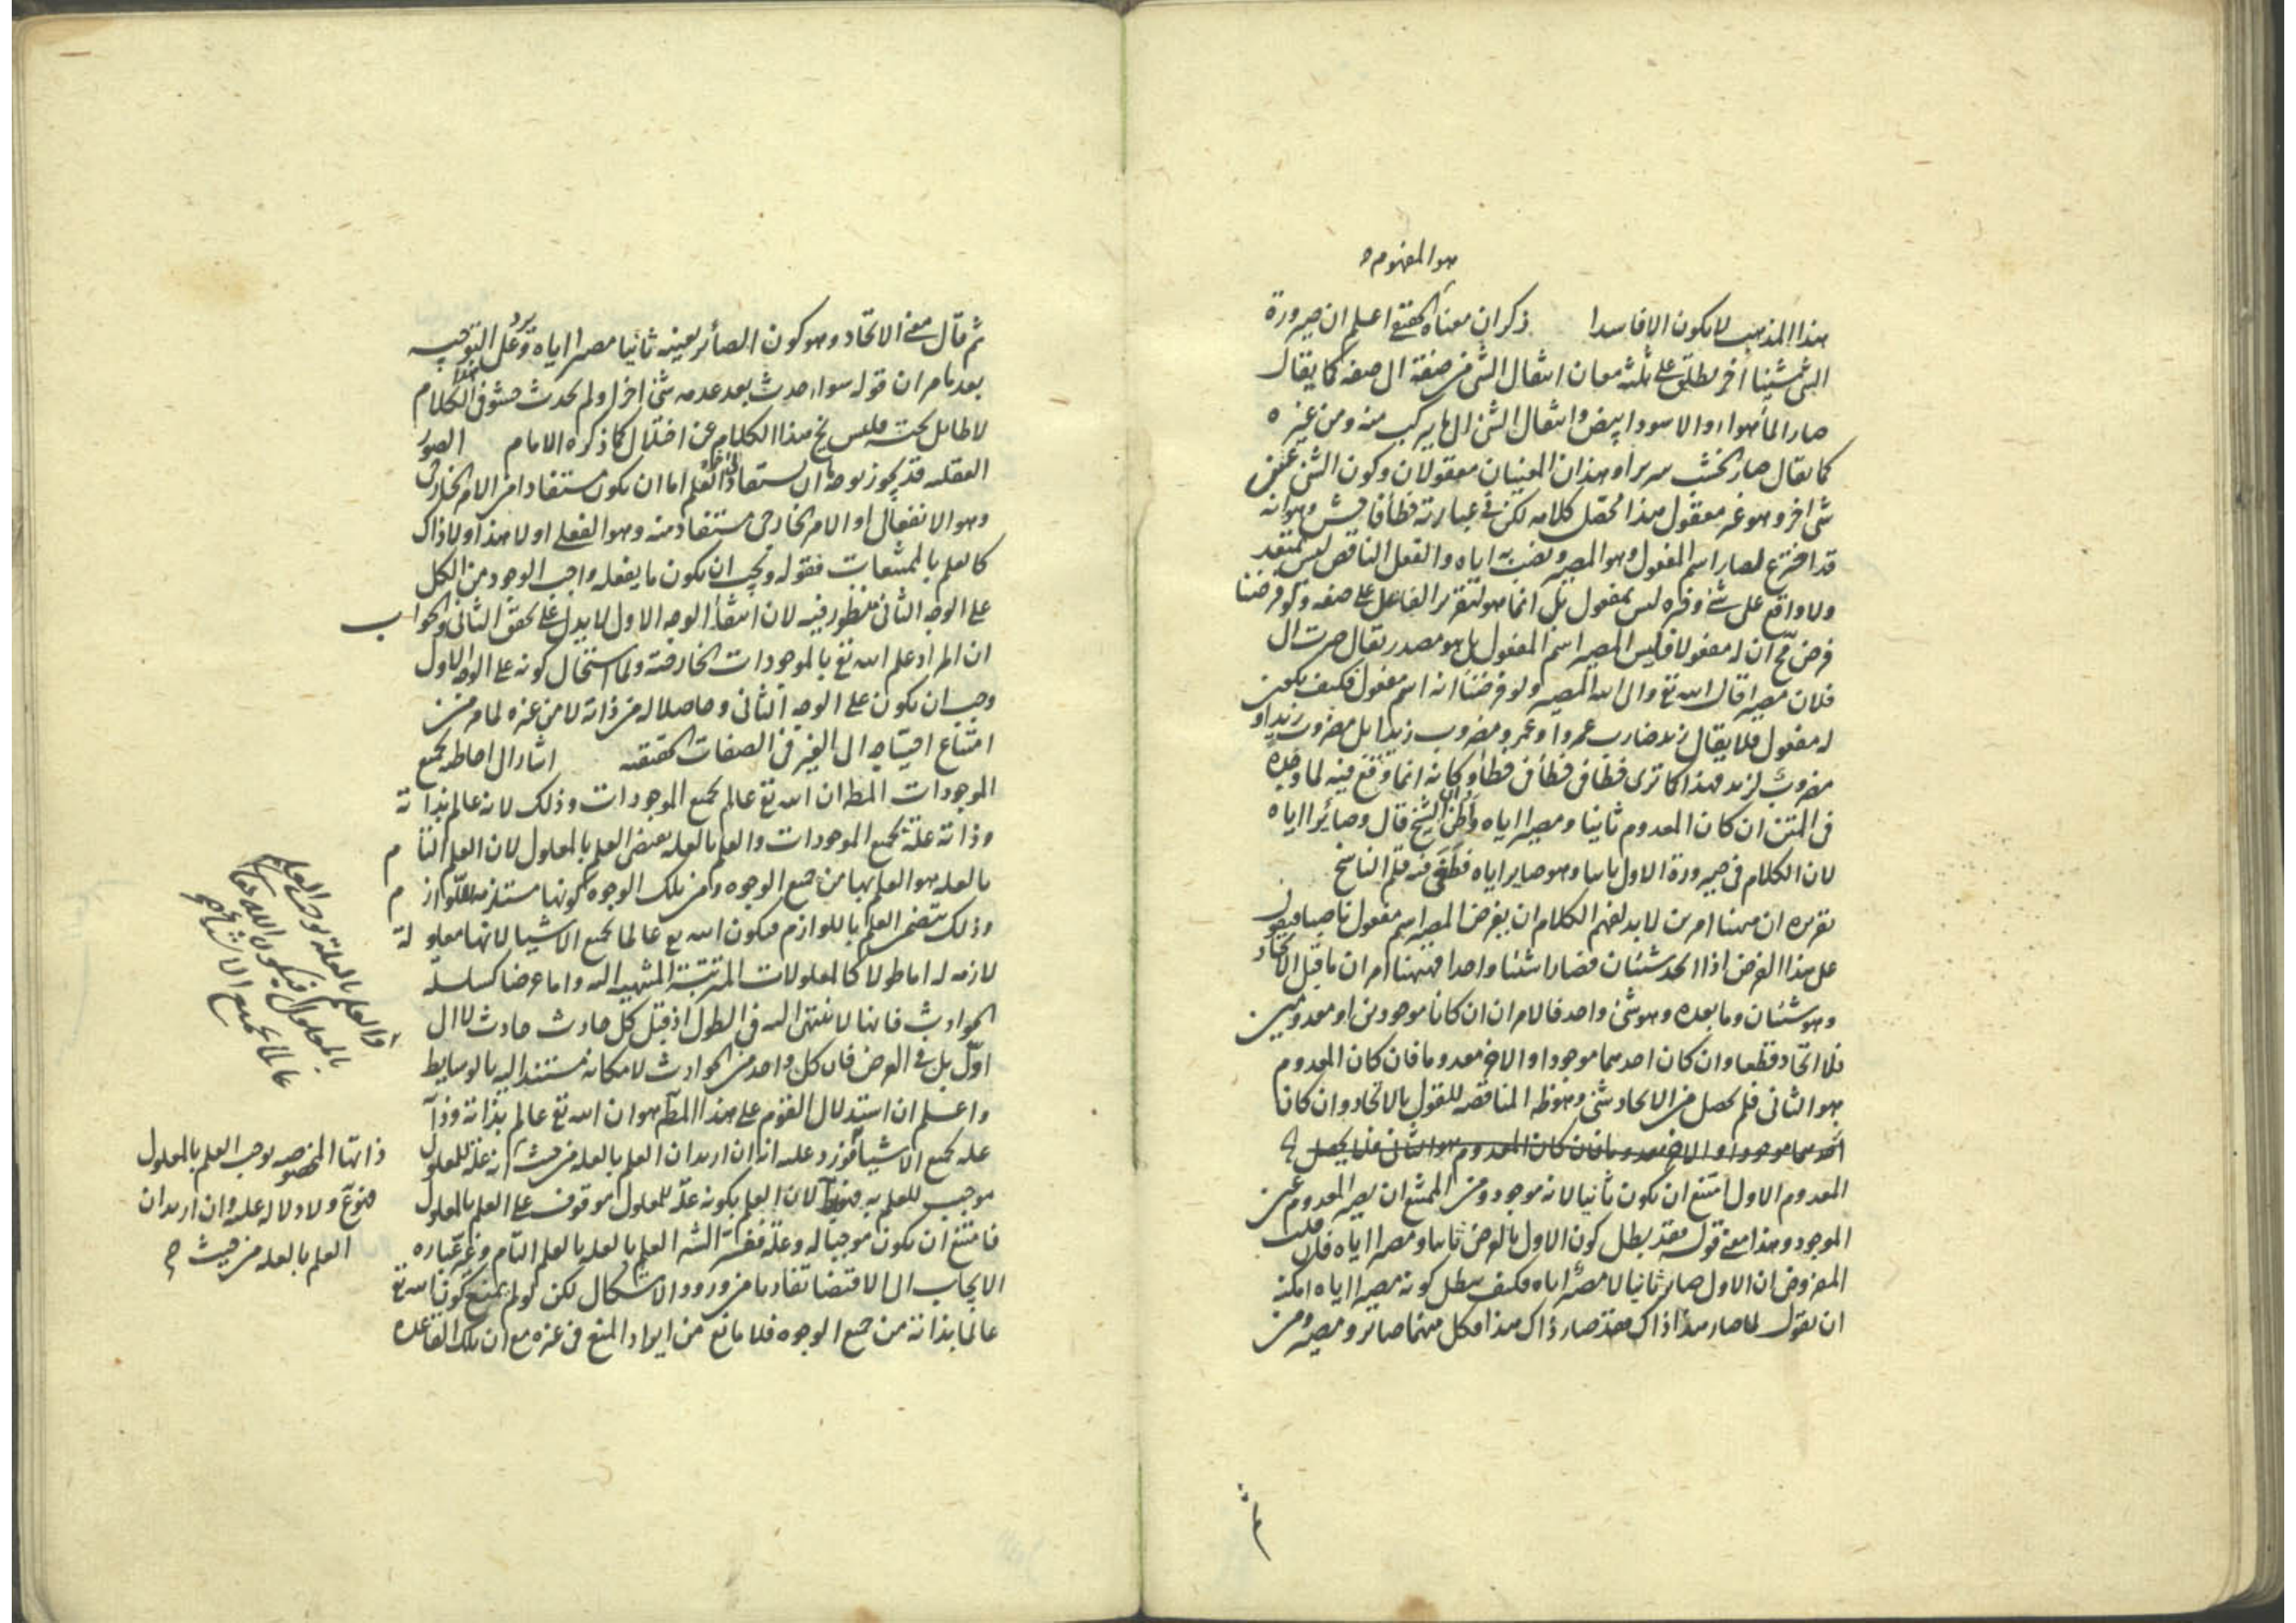 هو المفهوم
هذا المذهب لا يكون الا فاسدا ذكر ان معناه الحقيقى اعلم ان صيرورة
الشى شيئا آخر يطلق على ثلثة معان انتقال الشى من صفة الى صفة كما يقال
صار الماء هواء او الاسود ابيض وانتقال الشئ الى ما يتركب منه ومن غيره
كما يقال صار الخشب سريرا وهذان المعنيان معقولان وكون الشئ عين
شى اخر وهو غير معقول هذا محصل كلامه لكن فى عبارته خطأ فاحش وهو انه
قد اخترع لصار اسم المفعول وهو المصير ونصب به اياه والفعل الناقص ليس بمتعد
ولا واقع على شئ وخبره ليس بمفعول بل انما هو لتقرير الفاعل على صفة ولو فرضنا
فرض مح ان له مفعولا فليس المصير اسم المفعول بل هو مصدر يقال صرت الى
فلان مصيرا قال الله تع والى الله المصير ولو فرضنا انه اسم مفعول فكيف يكون
له مفعول فلا يقال زيد ضارب عمروا وعمرو مضروب زيدا بل مضروب زيد او
مضروب لزيد فهذا كما ترى خطأ فى خطأ فى خطأ وكانه انما وقع فيه لما وجده
فى المتن ان كان المعدوم ثانيا ومصيرا اياه واظن ان الشيخ قال وصائرا اياه
لان الكلام فى صيرورة الاول ثانيا وهو صاير اياه فطغى فيه قلم الناسخ
تقريره ان ههنا امرين لا بد لفهم الكلام ان يفرض المصير اسم مفعول ناصبا فيقول
على هذا الفرض اذا اتحد شيئان فصارا شيئا واحدا فههنا امران ما قبل الاتحاد
وهو شيئان وما بعده وهو شئ واحد فالامران ان كانا موجودين او معدومين
فلا اتحاد قطعا وان كان احدهما موجودا والاخر معدوما فان كان المعدوم
هو الثانى فلم يحصل من الاتحاد شئ وهو ظ المناقضة للقول بالاتحاد وان كانا
احدهما موجودا والاخر معدوما فان كان المعدوم هو الثانى فلا يحصل
المعدوم الاول امتنع ان يكون ثانيا لانه موجود ومن الممتنع ان يصير المعدوم عين
الموجود وهذا معنى قوله فقد بطل كون الاول بالعرض ثانيا ومصيرا اياه فان قلت
المفروض ان الاول صاير ثانيا لا مصير اياه فكيف يبطل كونه مصيرا اياه امكنه
ان يقول لما صار هذا ذاك فقد صار ذاك هذا فكل منهما صائر ومصير ومن
ثم
ثم قال معنى الاتحاد وهو كون الصائر بعينه ثانيا مصيرا اياه ويرد على التوجيه
بعد ما مر ان قوله سواء حدث بعد عدمه شئ اخر او لم يحدث حشو فى الكلام
لا طائل تحته فليس يخ هذا الكلام عن اختلال كما ذكره الامام الصور
العقلية قد يجوز بوجه ما ان يستفاد العلم اما ان يكون مستفادا من الامر الخارجى
وهو الانفعالى او الامر الخارجى مستفاد منه وهو الفعلى او لا هذا ولا ذاك
كالعلم بالممتنعات فقوله ويجب ان يكون ما يفعله واجب الوجود من الكل
على الوجه الثانى منظور فيه لان انتفاء الوجه الاول لا يدل على تحقق الثانى والجواب
ان المراد علم الله تع بالموجودات الخارجية ولما استحال كونه على الوجه الاول
وجب ان يكون على الوجه الثانى وحاصلا له من ذاته لا من غيره لما مر من
امتناع احتياجه الى الغير فى الصفات الحقيقية اشار الى احاطته بجميع
الموجودات المط ان الله تع عالم بجميع الموجودات وذلك لانه عالم بذاته
وذاته علة لجميع الموجودات والعلم بالعلة يقتضى العلم بالمعلول لان العلم التام
بالعلة هو العلم بها من جميع الوجوه ومن تلك الوجوه كونها مستلزمة للوازم
وذلك يتضمن العلم باللوازم فيكون الله تع عالما بجميع الاشيا لانها معلولة
لازمة له اما طولا كالمعلولات المترتبة المنتهية اليه واما عرضا كسلسلة
الحوادث فانها لا تنتهى اليه فى الطول اذ قبل كل حادث حادث لا الى
اول بل فى العرض فان كل واحد من الحوادث لامكانه مستند اليه بالوسايط
واعلم ان استدلال القوم على هذا المط هو ان الله تع عالم بذاته وذاته
علة لجميع الاشيا فورد عليه انه ان اريد ان العلم بالعلة من حيث انه علة للمعلول
موجب للعلم به فهو لان العلم بكونه علة للمعلول موقوف على العلم بالمعلول
فامتنع ان يكون موجبا له وعلة ففسر الشه العلم بالعلة بالعلم التام وغير عبارة
الايجاب الى الاقتضا تفاديا من ورود الاشكال لكن لو لم يمنع كون الله تع
عالما بذاته من جميع الوجوه فلا مانع من ايراد المنع فى غيره مع ان تلك القاعدة
والعلم بالعلة يوجب العلم
بالمعلول فيكون الله تعالى
عالما بجميع الاشيا صح
ذاتها المخصوصه يوجب العلم بالمعلول
فمنوع ولا دلالة عليه وان اريد ان
العلم بالعلة من حيث صح